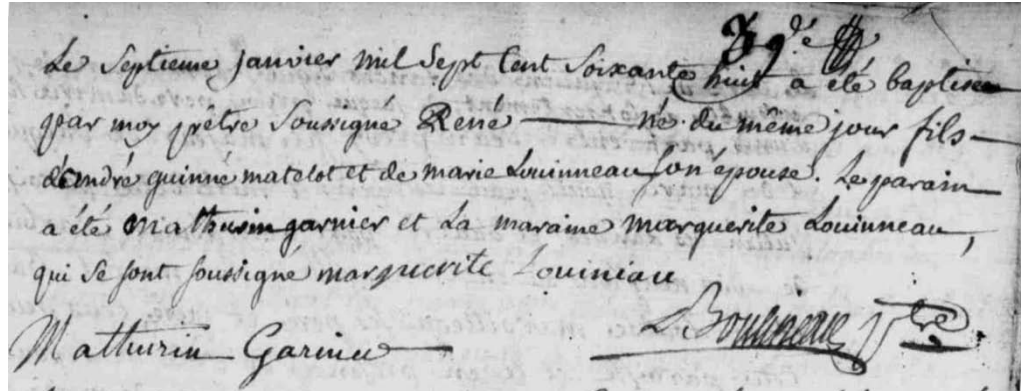 39.e
Le Septieme janvier mil Sept Cent Soixante huit a été baptisée
par moy prêtre Soussigné René né du même jour fils
d'andré guinné matelot et de marie Louinneau son épouse. Le parain
a été Mathurin garnier et La maraine marguerite Louinneau,
qui se sont soussigné marguerite Louiniau
Mathurin Garnier ptre